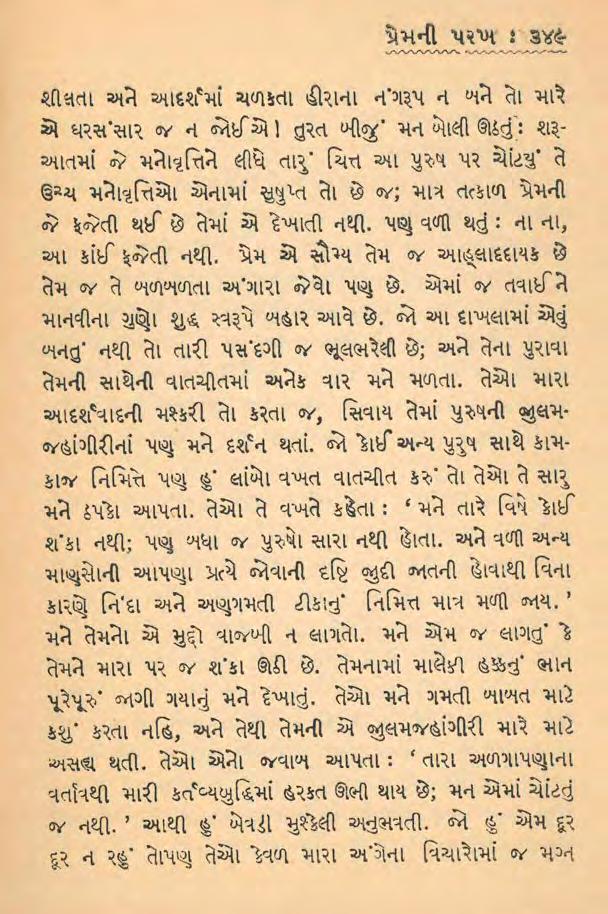 પ્રેમની પરખ : ૩૪૯
શીલતા અને આદર્શમાં ચળકતા હીરાના નંગરૂપ ન બને તો મારે
એ ઘરસંસાર જ ન જોઈએ! તુરત બીજું મન બોલી ઊઠતું : શરૂ-
આતમાં જે મનોવૃત્તિને લીધે તારું ચિત્ત આ પુરુષ પર ચોંટયું તે
ઉચ્ચ મનોવૃત્તિઓ એનામાં સુષુપ્ત તો છે જ; માત્ર તત્કાળ પ્રેમની
જે ફજેતી થઈ છે તેમાં એ દેખાતી નથી. પણ વળી થતું : ના ના,
આ કાંઈ ફજેતી નથી. પ્રેમ એ સૌમ્ય તેમ જ આહ્લાદદાયક છે
તેમ જ તે બળબળતા અંગારા જેવો પણ છે. એમાં જ તવાઈને
માનવીના ગુણો શુદ્ધ સ્વરૂપે બહાર આવે છે. જો આ દાખલામાં એવું
બનતું નથી તો તારી પસંદગી જ ભૂલભરેલી છે; અને તેના પુરાવા
તેમની સાથેની વાતચીતમાં અનેક વાર મને મળતા. તેઓ મારા
આદર્શવાદની મશ્કરી તો કરતા જ, સિવાય તેમાં પુરુષની જુલમ-
જહાંગીરીનાં પણ મને દર્શન થતાં. જો કોઈ અન્ય પુરુષ સાથે કામ-
કાજ નિમિત્તે પણ હું લાંબો વખત વાતચીત કરું તો તેઓ તે સારુ
મને ઠપકો આપતા. તેઓ તે વખતે કહેતા : ‘ મને તારે વિષે કોઈ
શંકા નથી; પણ બધા જ પુરુષો સારા નથી હોતા. અને વળી અન્ય
માણસોની આપણા પ્રત્યે જોવાની દષ્ટિ જુદી જાતની હોવાથી વિના
કારણે નિંદા અને અણગમતી ટીકાનું નિમિત્ત માત્ર મળી જાય. ’
મને તેમનો એ મુદ્દો વાજબી ન લાગતો. મને એમ જ લાગતું કે
તેમને મારા પર જ શંકા ઊઠી છે. તેમનામાં માલેકી હક્કનું ભાન
પૂરેપૂરું જાગી ગયાનું મને દેખાતું. તેઓ મને ગમતી બાબત માટે
કશું કરતા નહિ, અને તેથી તેમની એ જુલમજહાંગીરી મારે માટે
અસહ્ય થતી. તેઓ એનો જવાબ આપતા : ‘ તારા અળગાપણાના
વર્તાવથી મારી કર્તવ્યબુદ્ધિમાં હરકત ઊભી થાય છે; મન એમાં ચોંટતું
જ નથી. ’ આથી હું બેવડી મુશ્કેલી અનુભવતી. જો હું એમ દૂર
દૂર ન રહું તોપણ તેઓ કેવળ મારા અંગેના વિચારોમાં જ મગ્ન